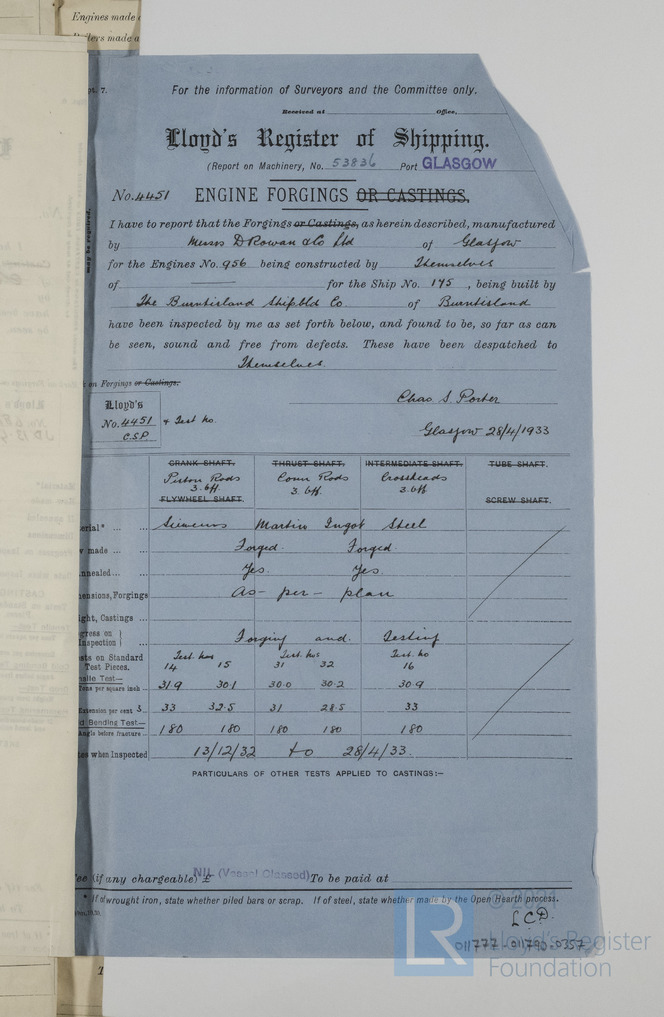 Engines made
Boilers made a
pt. 7.
For the information of Surveyors and the Committee only.
Received at Office,
Lloyd's Register of Shipping.
(Report on Machinery, No. 53836 Port GLASGOW
No. 4451 ENGINE FORGINGS OR CASTINGS.
may be required.
I have to report that the Forgings or Castings, as herein described, manufactured
by Messrs D Rowan & Co Ltd of Glasgow
for the Engines No. 956 being constructed by Themselves
of for the Ship No. 175, being built by
The Burntisland Shipbld Co. of Burntisland
have been inspected by me as set forth below, and found to be, so far as can
be seen, sound and free from defects. These have been despatched to
Themselves.
on Forgings or Castings.
Chas S Porter
Lloyd's
No. 4451 & Test No.
C.S.P
Glasgow 28/4/1933
CRANK SHAFT. THRUST SHAFT. INTERMEDIATE SHAFT. TUBE SHAFT.
Piston Rods Conn Rods Crossheads
3. off 3. off 3. off
FLYWHEEL SHAFT. SCREW SHAFT.
erial* Siemens Martin Ingot Steel
w made Forged. Forged.
nnealed Yes. Yes.
ensions, Forgings As - per - plan
ght, Castings
gress on
Inspection Forging and. Testing
sts on Standard Test Nos Test Nos Test No
Test Pieces. 14 15 31 32 16
nsile Test—
Tons per square inch 31.9 30.1 30.0 30.2 30.9
Extension per cent 3 33 32.5 31 28.5 33
d Bending Test—
Angle before fracture 180 180 180 180 180
tes when Inspected 13/12/32 to 28/4/33.
PARTICULARS OF OTHER TESTS APPLIED TO CASTINGS:—
ee (if any chargeable) £ NIL (Vessel Classed) To be paid at
* If of wrought iron, state whether piled bars or scrap. If of steel, state whether made by the Open Hearth process.
© 2021
L.C.D.
011777-011790-0357
LR
Lloyd's Register
Foundation